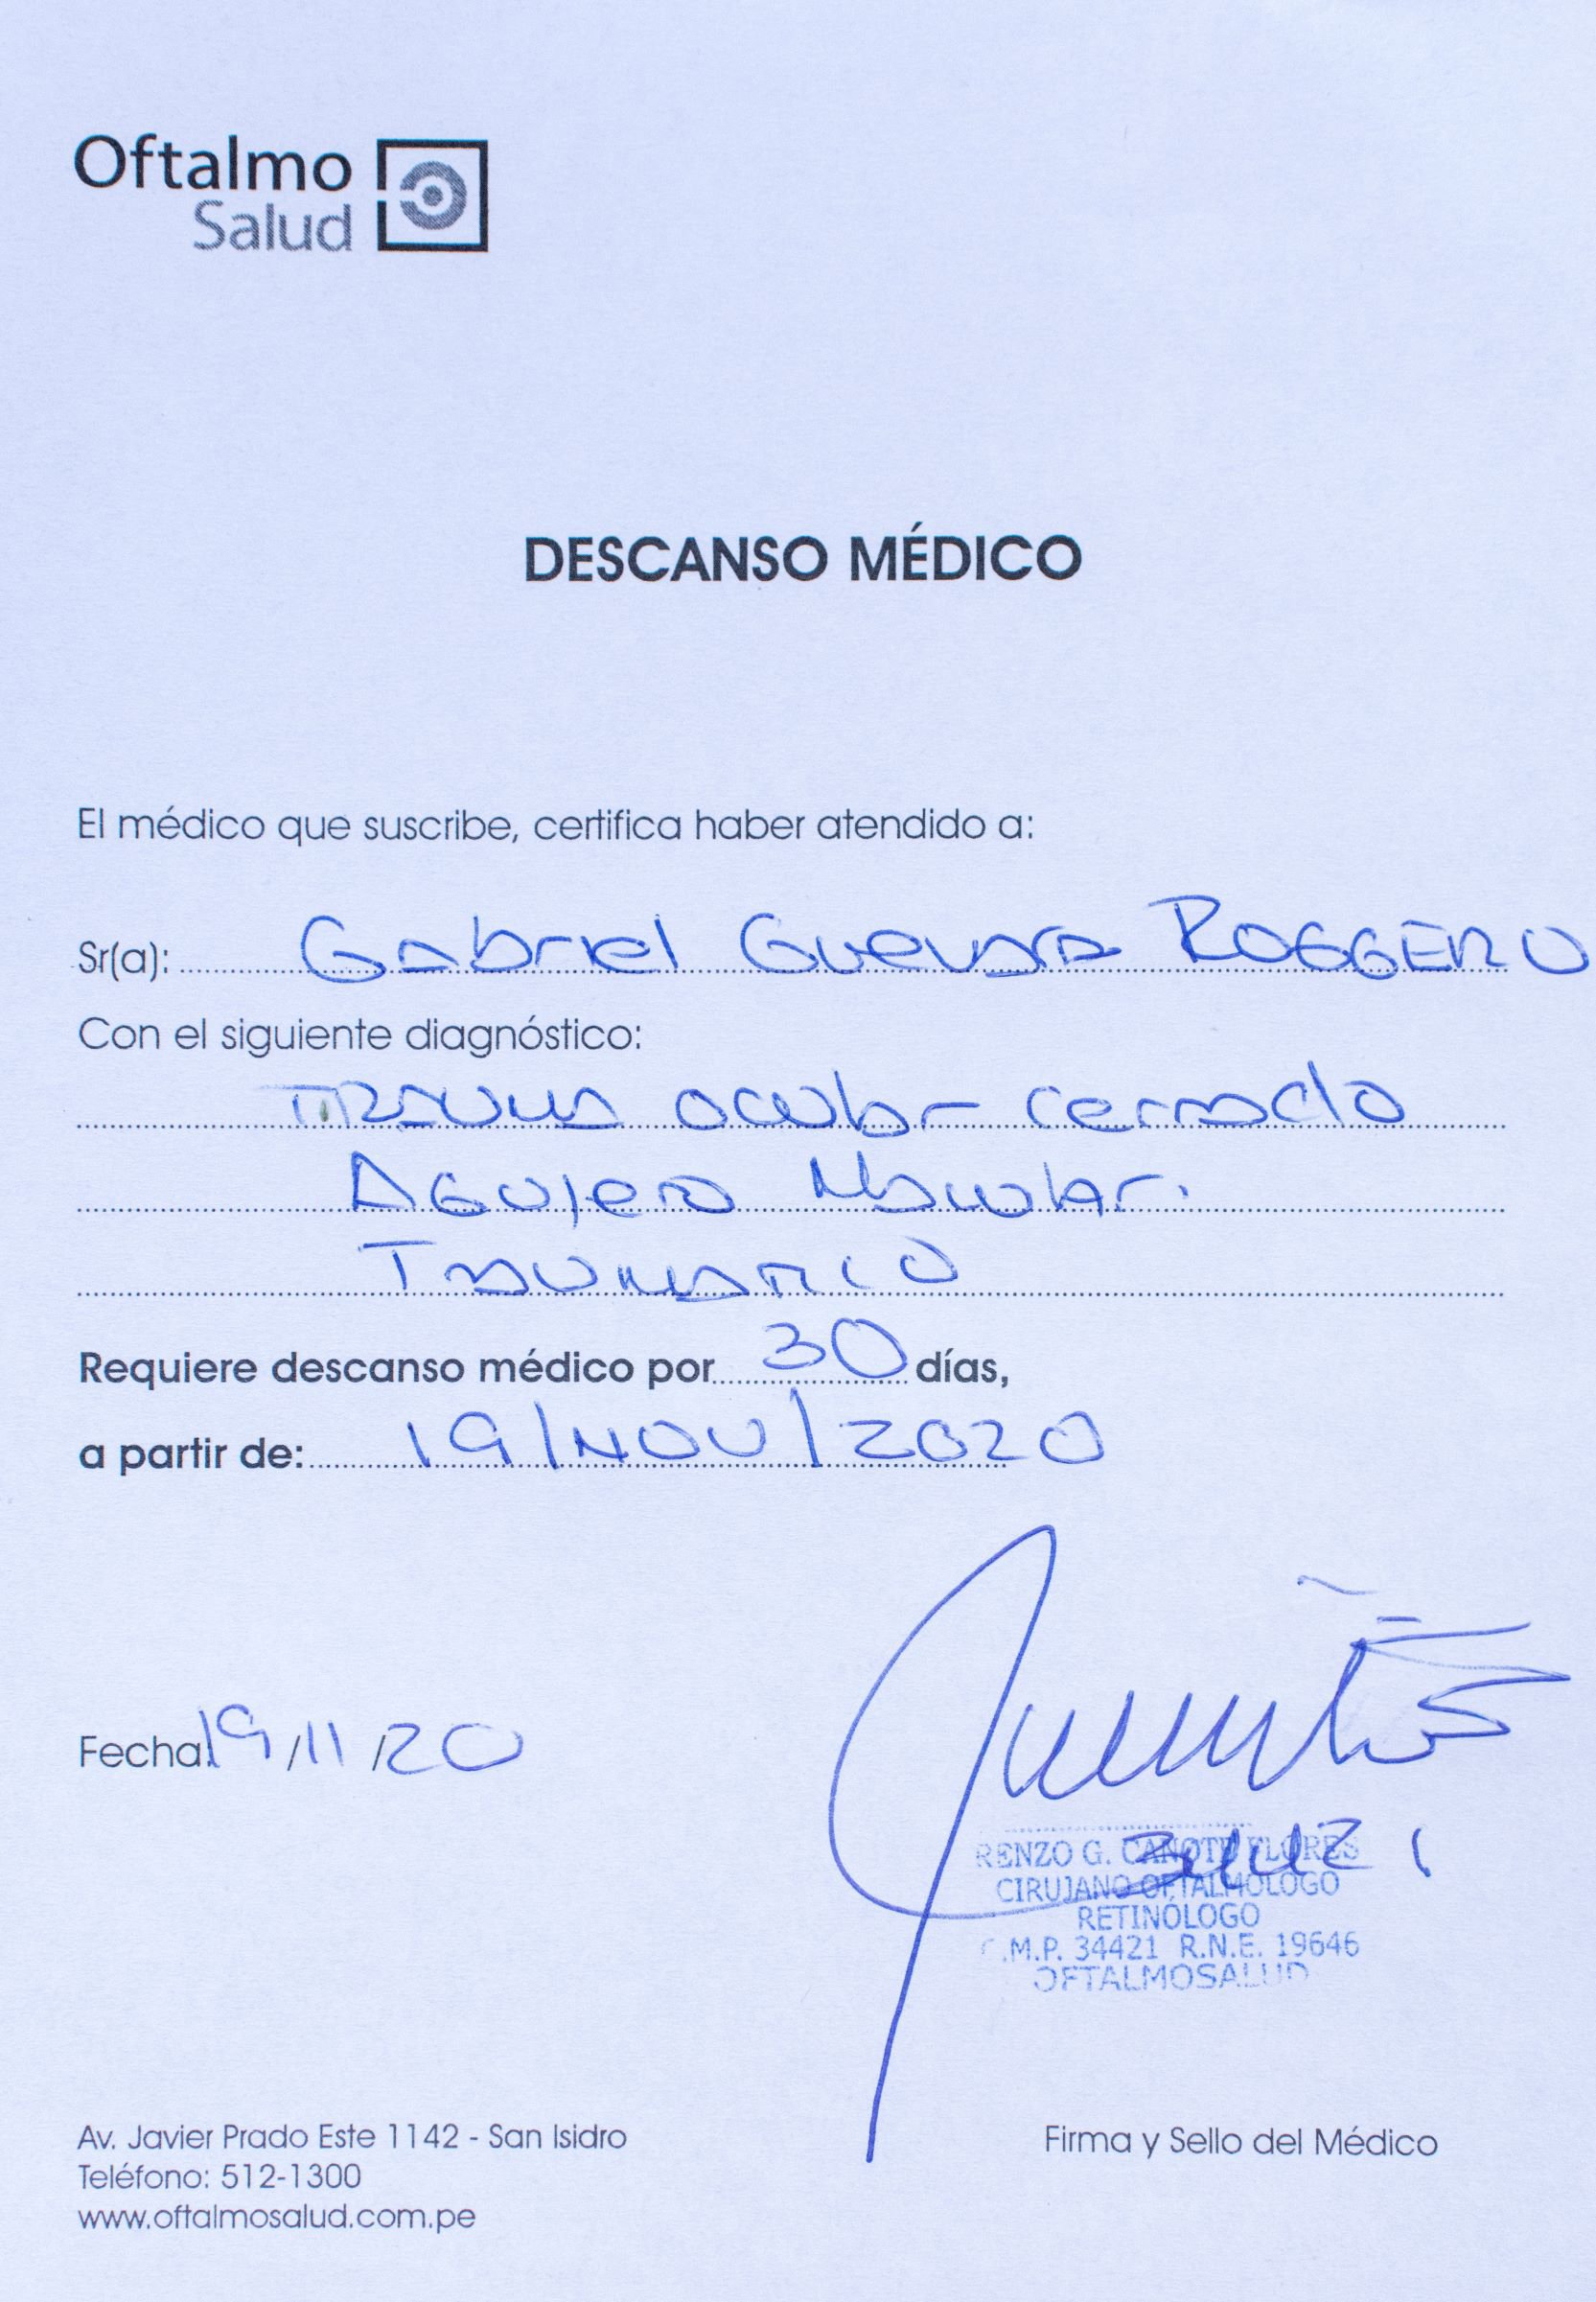 Oftalmo
Salud
DESCANSO MÉDICO
El médico que suscribe, certifica haber atendido a:
Sr(a): Gabriel Guevara ROGGERO
Con el siguiente diagnóstico:
TRAUMA ocular cerrado
AGUJERO Macular.
TRAUMATICO
Requiere descanso médico por 30 días,
a partir de: 19/NOV/2020
Fecha: 19/11/20
RENZO G. CANOTE FLORES
CIRUJANO OFTALMÓLOGO
RETINÓLOGO
C.M.P. 34421 R.N.E. 19646
OFTALMOSALUD
Av. Javier Prado Este 1142 - San Isidro
Teléfono: 512-1300
www.oftalmosalud.com.pe
Firma y Sello del Médico